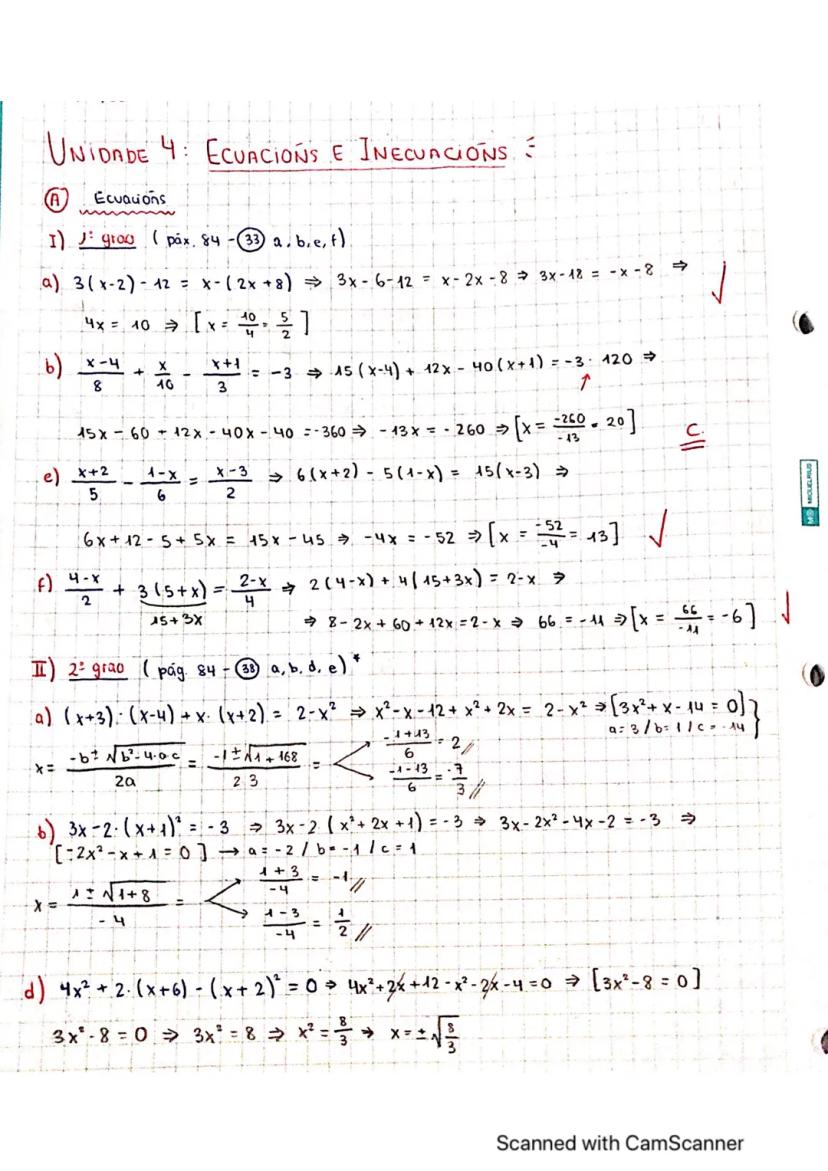 UNIDADE 4: ECUACIÓNS E INECUACIÓNS :
Ⓐ Ecuacións
I) 1º grao ( páx. 84 - ㉝ a, b, e, f)
a) 3(x-2) - 12 = x - (2x+8) ⇒ 3x - 6 - 12 = x - 2x - 8 ⇒ 3x - 18 = -x - 8 ⇒ ✓
4x = 10 ⇒ [x = 10/4 = 5/2]
b) x-4/8 + x/10 - x+1/3 = -3 ⇒ 15(x-4) + 12x - 40(x+1) = -3 · 120 ⇒
15x - 60 + 12x - 40x - 40 = -360 ⇒ -13x = -260 ⇒ [x = -260/-13 = 20] C.
e) x+2/5 - 1-x/6 = x-3/2 ⇒ 6(x+2) - 5(1-x) = 15(x-3) ⇒
6x + 12 - 5 + 5x = 15x - 45 ⇒ -4x = -52 ⇒ [x = -52/-4 = 13] ✓
f) 4-x/2 + 3(5+x) = 2-x/4 ⇒ 2(4-x) + 4(15+3x) = 2-x ⇒
15+3x ⇒ 8 - 2x + 60 + 12x = 2 - x ⇒ 66 = -11 ⇒ [x = 66/-11 = -6] ✓
II) 2º grao ( pág. 84 - ㊳ a, b, d, e) *
a) (x+3)·(x-4) + x·(x+2) = 2-x² ⇒ x² - x - 12 + x² + 2x = 2 - x² ⇒ [3x² + x - 14 = 0] }
a = 3 / b = 1 / c = -14
x = -b ± √b² - 4·a·c/2a = -1 ± √1 + 168/2·3 = < -1+13/6 = 2 //
-1-13/6 = -7/3 //
b) 3x - 2·(x+1)² = -3 ⇒ 3x - 2(x² + 2x + 1) = -3 ⇒ 3x - 2x² - 4x - 2 = -3 ⇒
[-2x² - x + 1 = 0] → a = -2 / b = -1 / c = 1
x = 1 ± √1+8/-4 = < 1+3/-4 = -1 //
1-3/-4 = 1/2 //
d) 4x² + 2·(x+6) - (x+2)² = 0 ⇒ 4x² + 2x + 12 - x² - 2x - 4 = 0 ⇒ [3x² - 8 = 0]
3x² - 8 = 0 ⇒ 3x² = 8 ⇒ x² = 8/3 → x = ±√8/3
MIQUELRIUS
Scanned with CamScanner